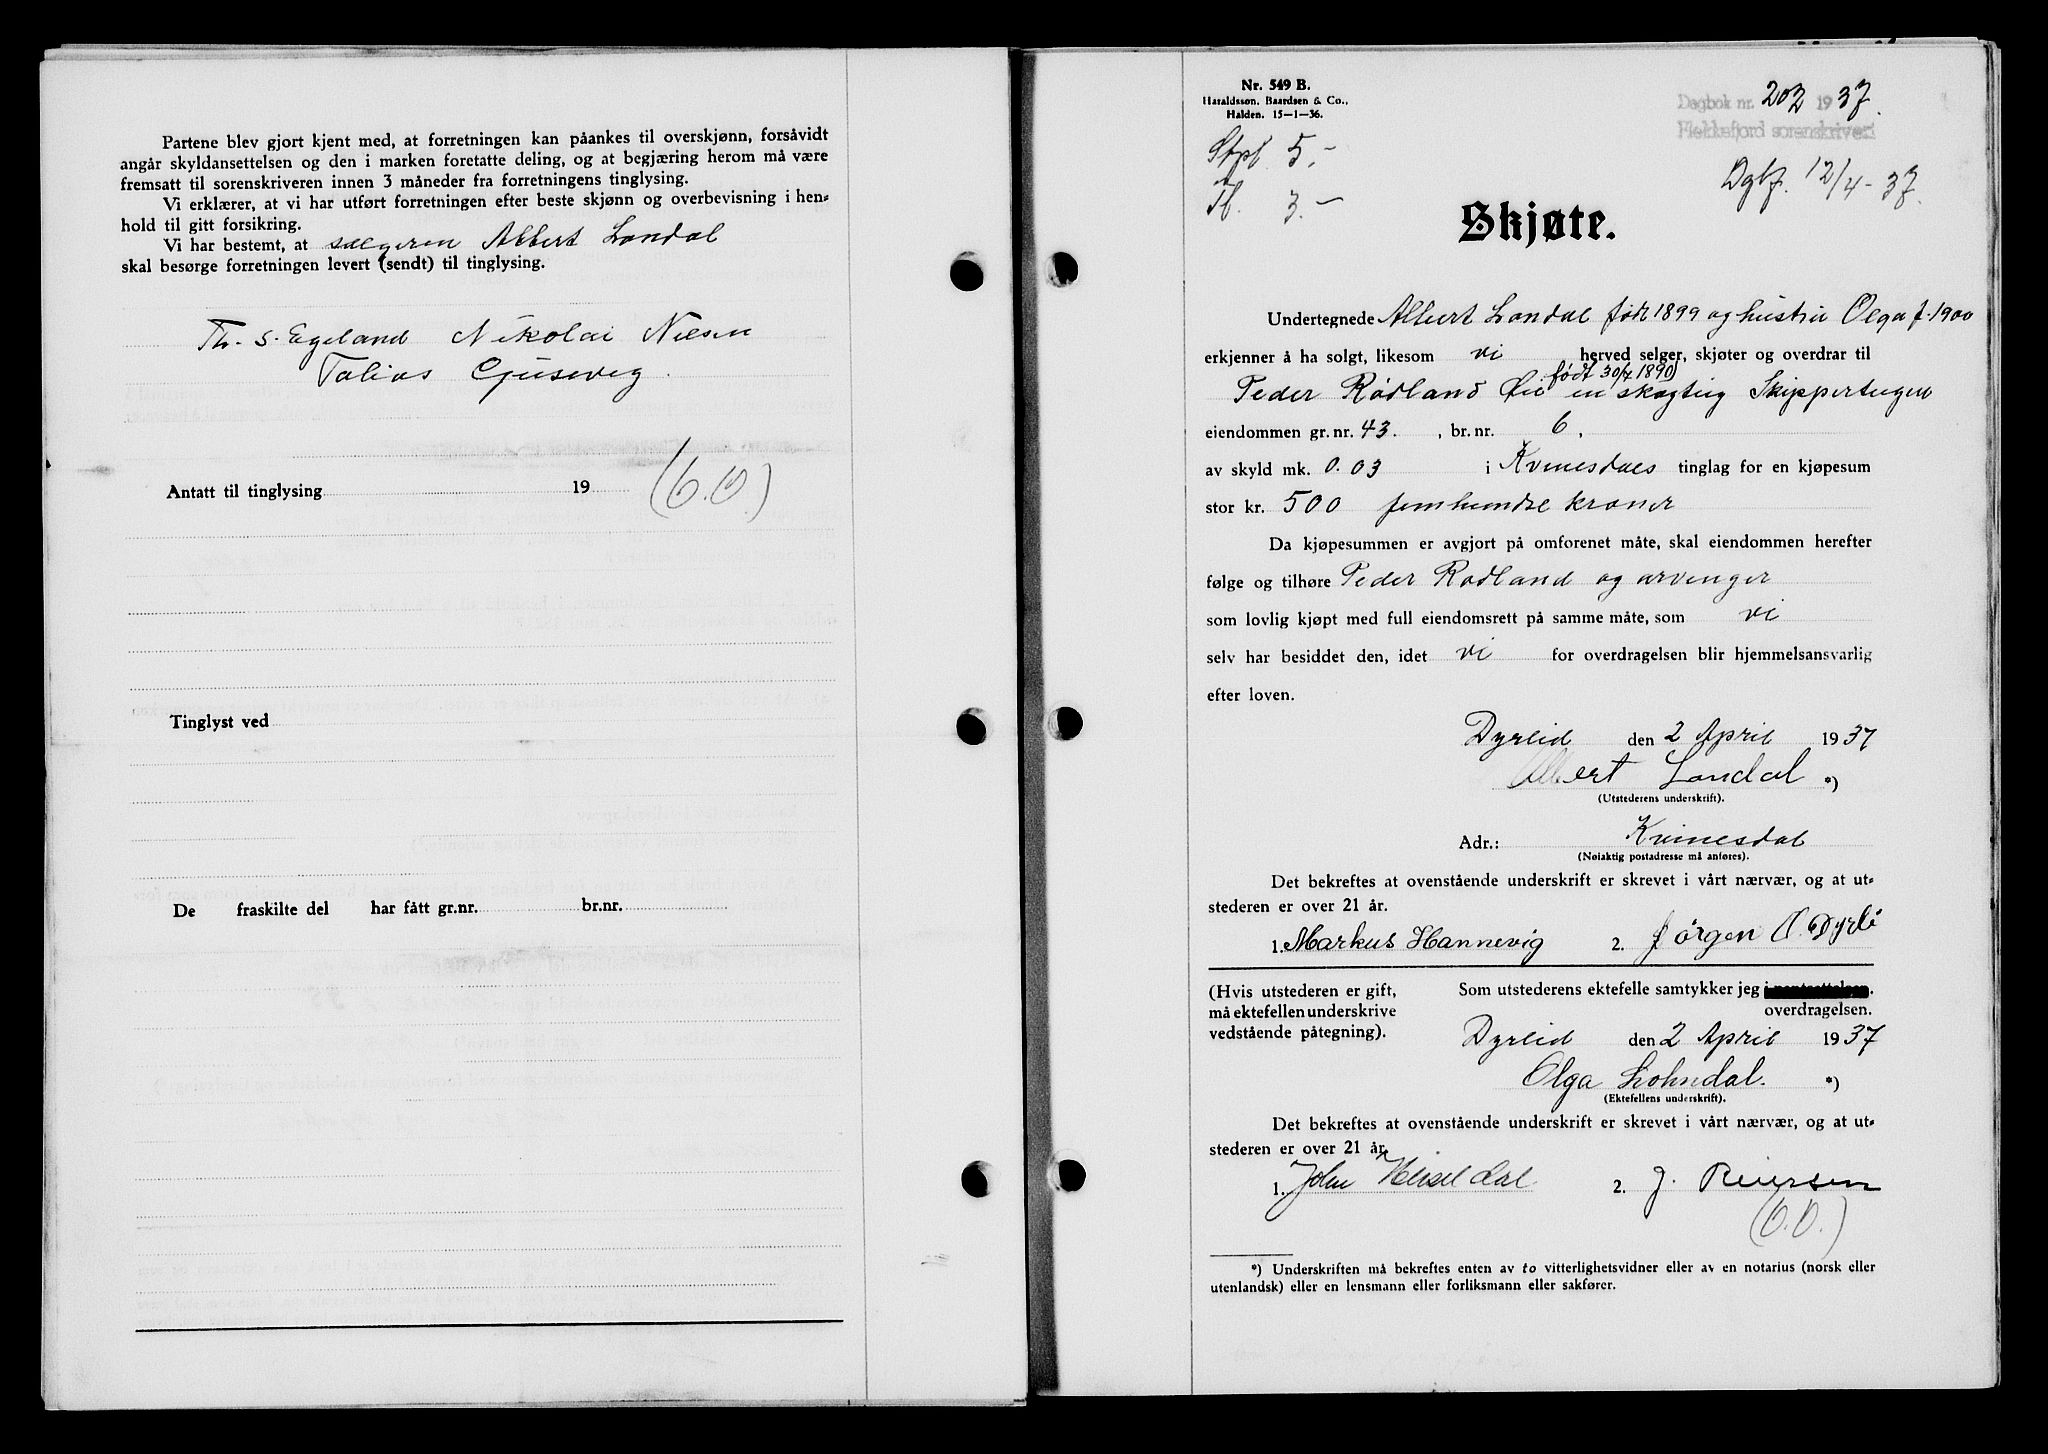 Partene blev gjort kjent med, at forretningen kan påankes til overskjønn, forsåvidt
angår skyldansettelsen og den i marken foretatte deling, og at begjæring herom må være
fremsatt til sorenskriveren innen 3 måneder fra forretningens tinglysing.
Vi erklærer, at vi har utført forretningen efter beste skjønn og overbevisning i hen-
hold til gitt forsikring.
Vi har bestemt, at sælgeren Albert Londal
skal besørge forretningen levert (sendt) til tinglysing.
Th. S. Egeland Nikolai Nilsen
Tobias Gjusevig.
Antatt til tinglysing 19 (O.O.)
Tinglyst ved
De fraskilte del har fått gr.nr. br.nr.
Nr. 549 B.
Haraldssøn, Baardsen & Co.,
Halden. 15-1-36.
Dagbok nr. 202 1937.
Flekkefjord sorenskriveri
Stpl. 5,-
Tl. 3.-
Dgbf. 12/4-37.
Skjøte.
Undertegnede Albert Londal født 1899 og hustru Olga f. 1900
erkjenner å ha solgt, likesom vi herved selger, skjøter og overdrar til
født 30/7 1890
Peder Rødland Øie en skogteig Skipperteigen
eiendommen gr. nr. 43. , br. nr. 6,
av skyld mk. 0.03 i Kvinesdals tinglag for en kjøpesum
stor kr. 500 femhundre kroner
Da kjøpesummen er avgjort på omforenet måte, skal eiendommen herefter
følge og tilhøre Peder Rødland og arvinger
som lovlig kjøpt med full eiendomsrett på samme måte, som vi
selv har besiddet den, idet vi for overdragelsen blir hjemmelsansvarlig
efter loven.
Dyrlid den 2 April 1937
Albert Londal *)
(Utstederens underskrift).
Adr.: Kvinesdal
(Nøiaktig postadresse må anføres).
Det bekreftes at ovenstående underskrift er skrevet i vårt nærvær, og at ut-
stederen er over 21 år.
1. Markus Hannevig 2. Jørgen O. Dyrli
(Hvis utstederen er gift, Som utstederens ektefelle samtykker jeg
må ektefellen underskrive overdragelsen.
vedstående påtegning).
Dyrlid den 2 April 1937
Olga Lohndal. *)
(Ektefellens underskrift).
Det bekreftes at ovenstående underskrift er skrevet i vårt nærvær, og at ut-
stederen er over 21 år.
1. John 2. J. Reiersen
(O.O.)
*) Underskriften må bekreftes enten av to vitterlighetsvidner eller av en notarius (norsk eller
utenlandsk) eller en lensmann eller forliksmann eller sakfører.